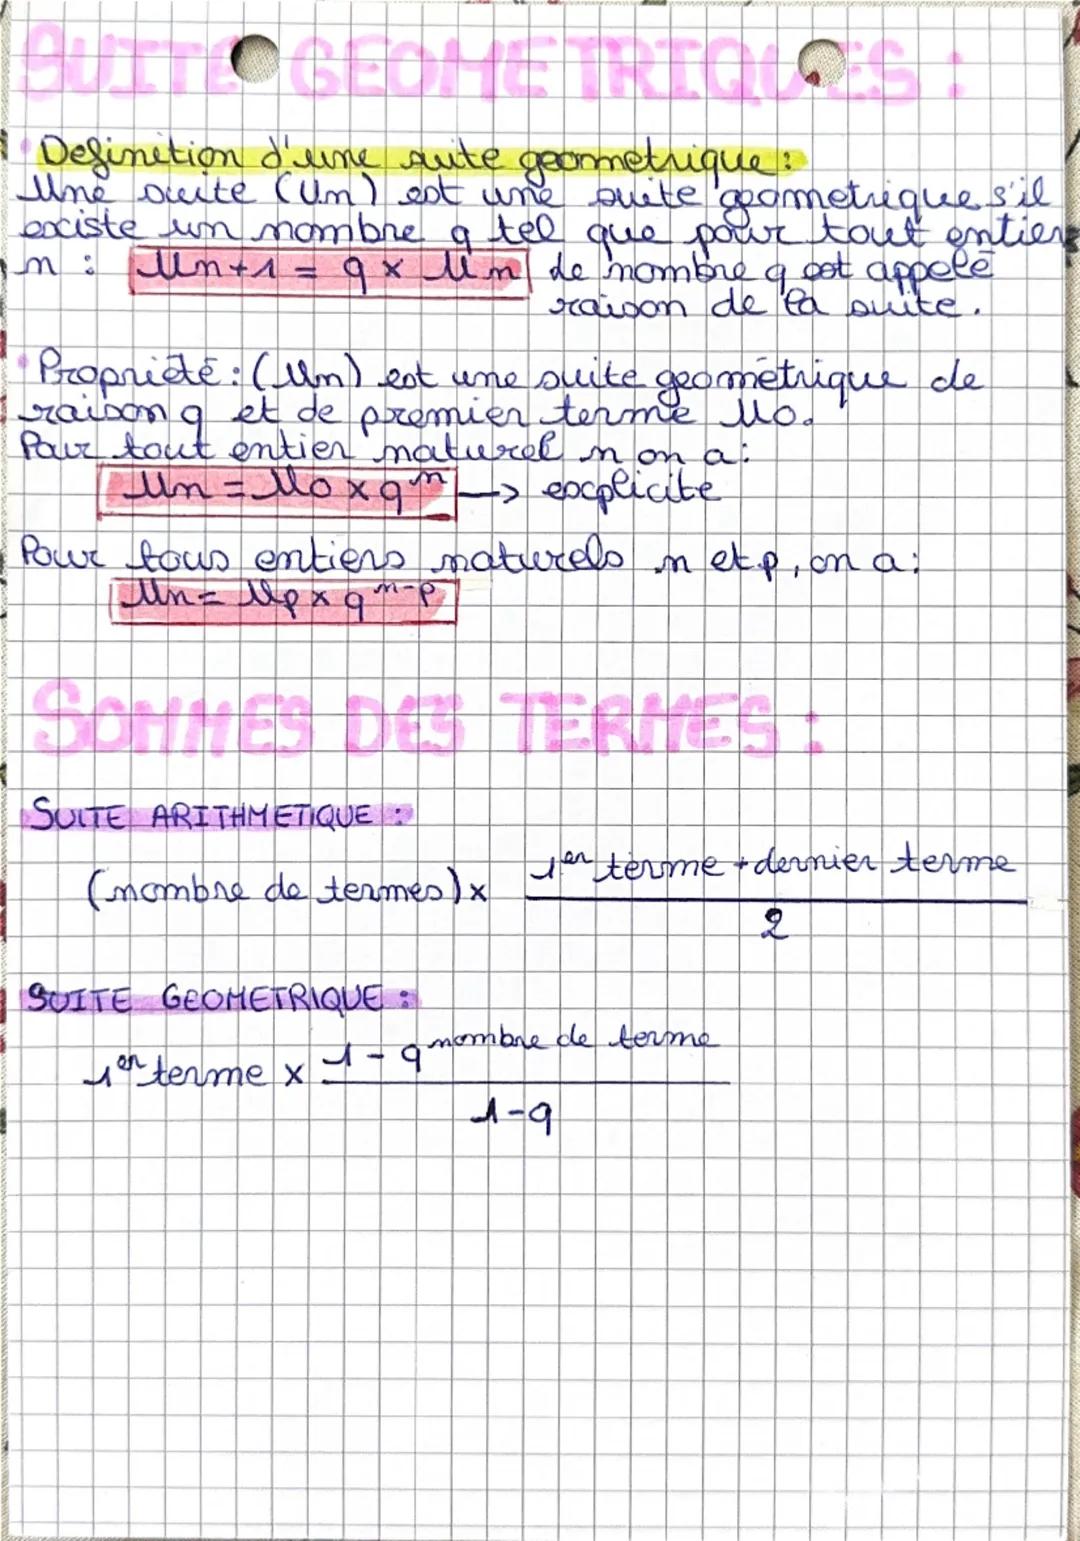 SUITE GEOMETRIQUES :
Definition d'une suite geometrique :
Une suite (Un) est une suite geometrique s'il
existe un nombre q tel que pour tout entier
n : Un+1 = q × Un Le nombre q est appelé
raison de la suite.
Propriété : (Un) est une suite géométrique de
raison q et de premier terme U0.
Pour tout entier naturel n on a :
Un = U0 × qⁿ → explicite
Pour tous entiers naturels n et p, on a :
Un = Up × qⁿ⁻ᵖ
SOMMES DES TERMES :
SUITE ARITHMETIQUE :
(nombre de termes) × 1er terme + dernier terme
2
SUITE GEOMETRIQUE :
1er terme × 1 - q nombre de terme
1-q